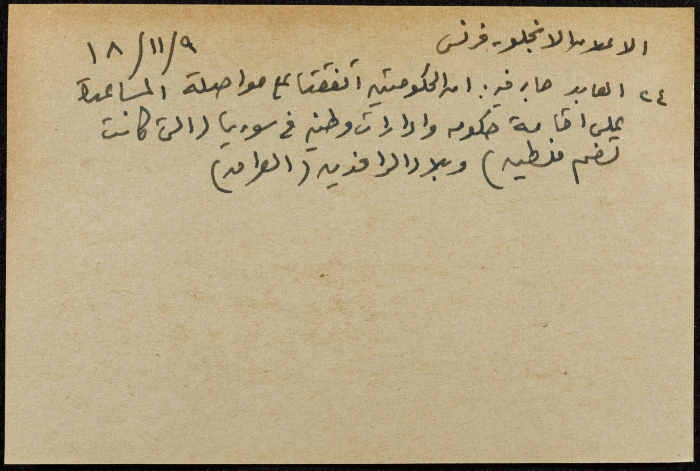 الاعلان الانجلو - فرنسي
١٨/١١/٩
٢٤ العابد جاء فيه: ان الحكومتين اتفقتا على مواصلة المساعدة
على اقامة حكومه وادارات وطنيه في سوريا (التي كانت
تضم فلسطين) وبلاد الرافدين (العراق)